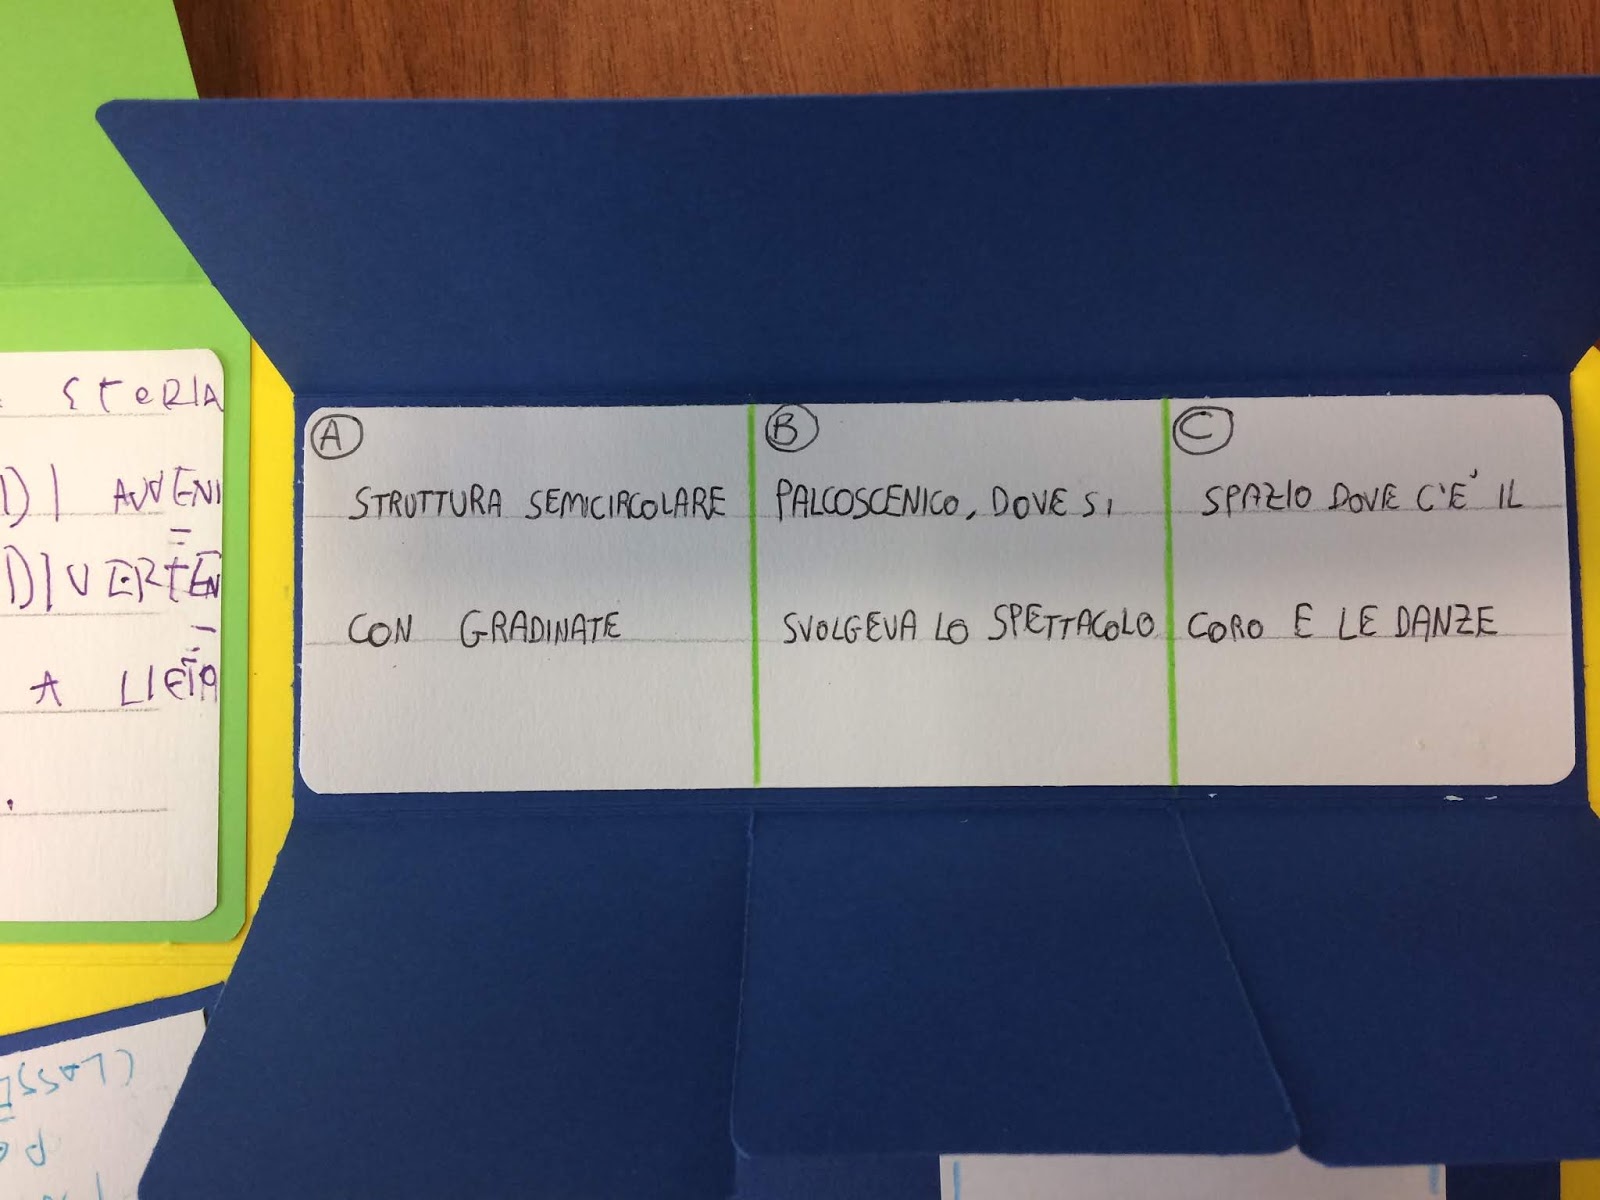 STORIA
DI AVVENI
DIVERTEN
A LIETA
A
STRUTTURA SEMICIRCOLARE
CON GRADINATE
B
PALCOSCENICO, DOVE SI
SVOLGEVA LO SPETTACOLO
C
SPAZIO DOVE C'E' IL
CORO E LE DANZE
CLASSE